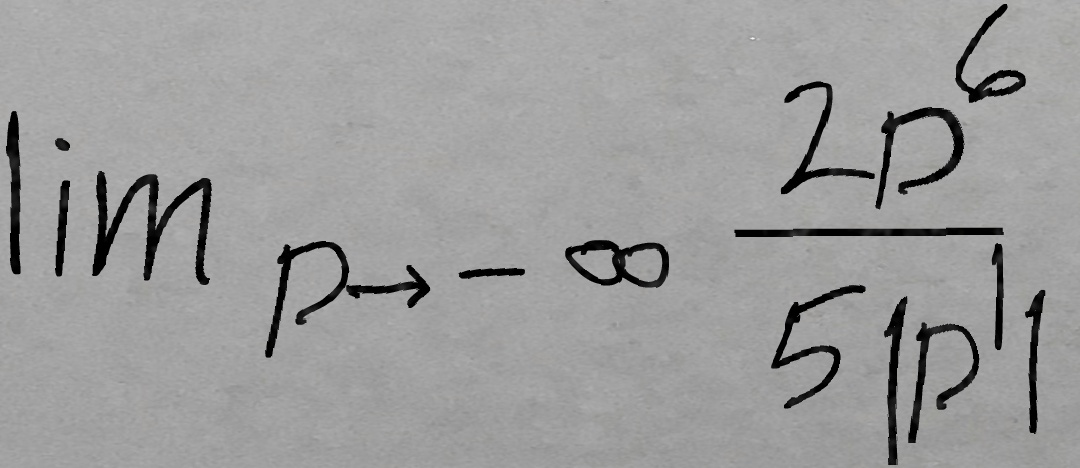 \lim_{p \to -\infty} \frac{2p^6}{5|p^1|}